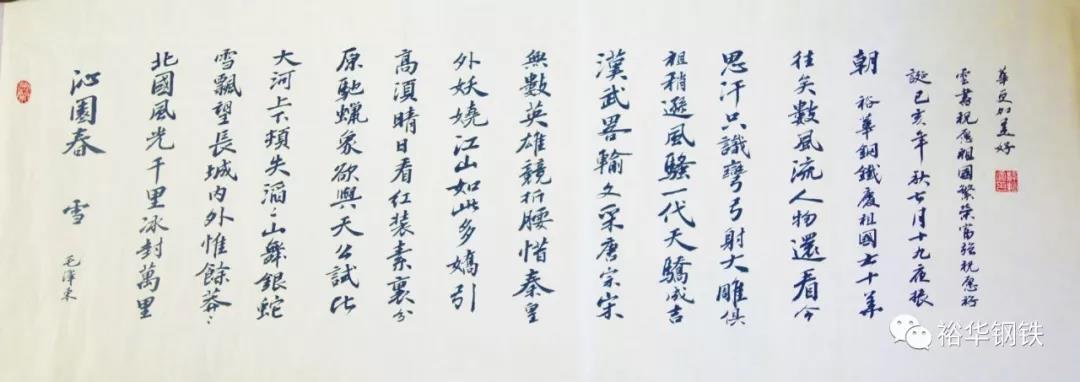 沁園春 雪 毛澤東
北國風光千里冰封萬里
雪飄望長城内外惟餘莽〻
大河上下頓失滔〻山舞銀蛇
原馳蠟象欲與天公試比
高須晴日看紅装素裹分
外妖嬈江山如此多嬌引
無數英雄競折腰惜秦皇
漢武畧輸文采唐宗宋
祖稍遜風騷一代天驕成吉
思汗只識彎弓射大雕俱
往矣數風流人物還看今
朝 裕華鋼鐵慶祖國七十華
誕己亥年秋七月十九夜振
雲書祝愿祖國繁榮富強祝愿裕
華更加美好
裕华钢铁